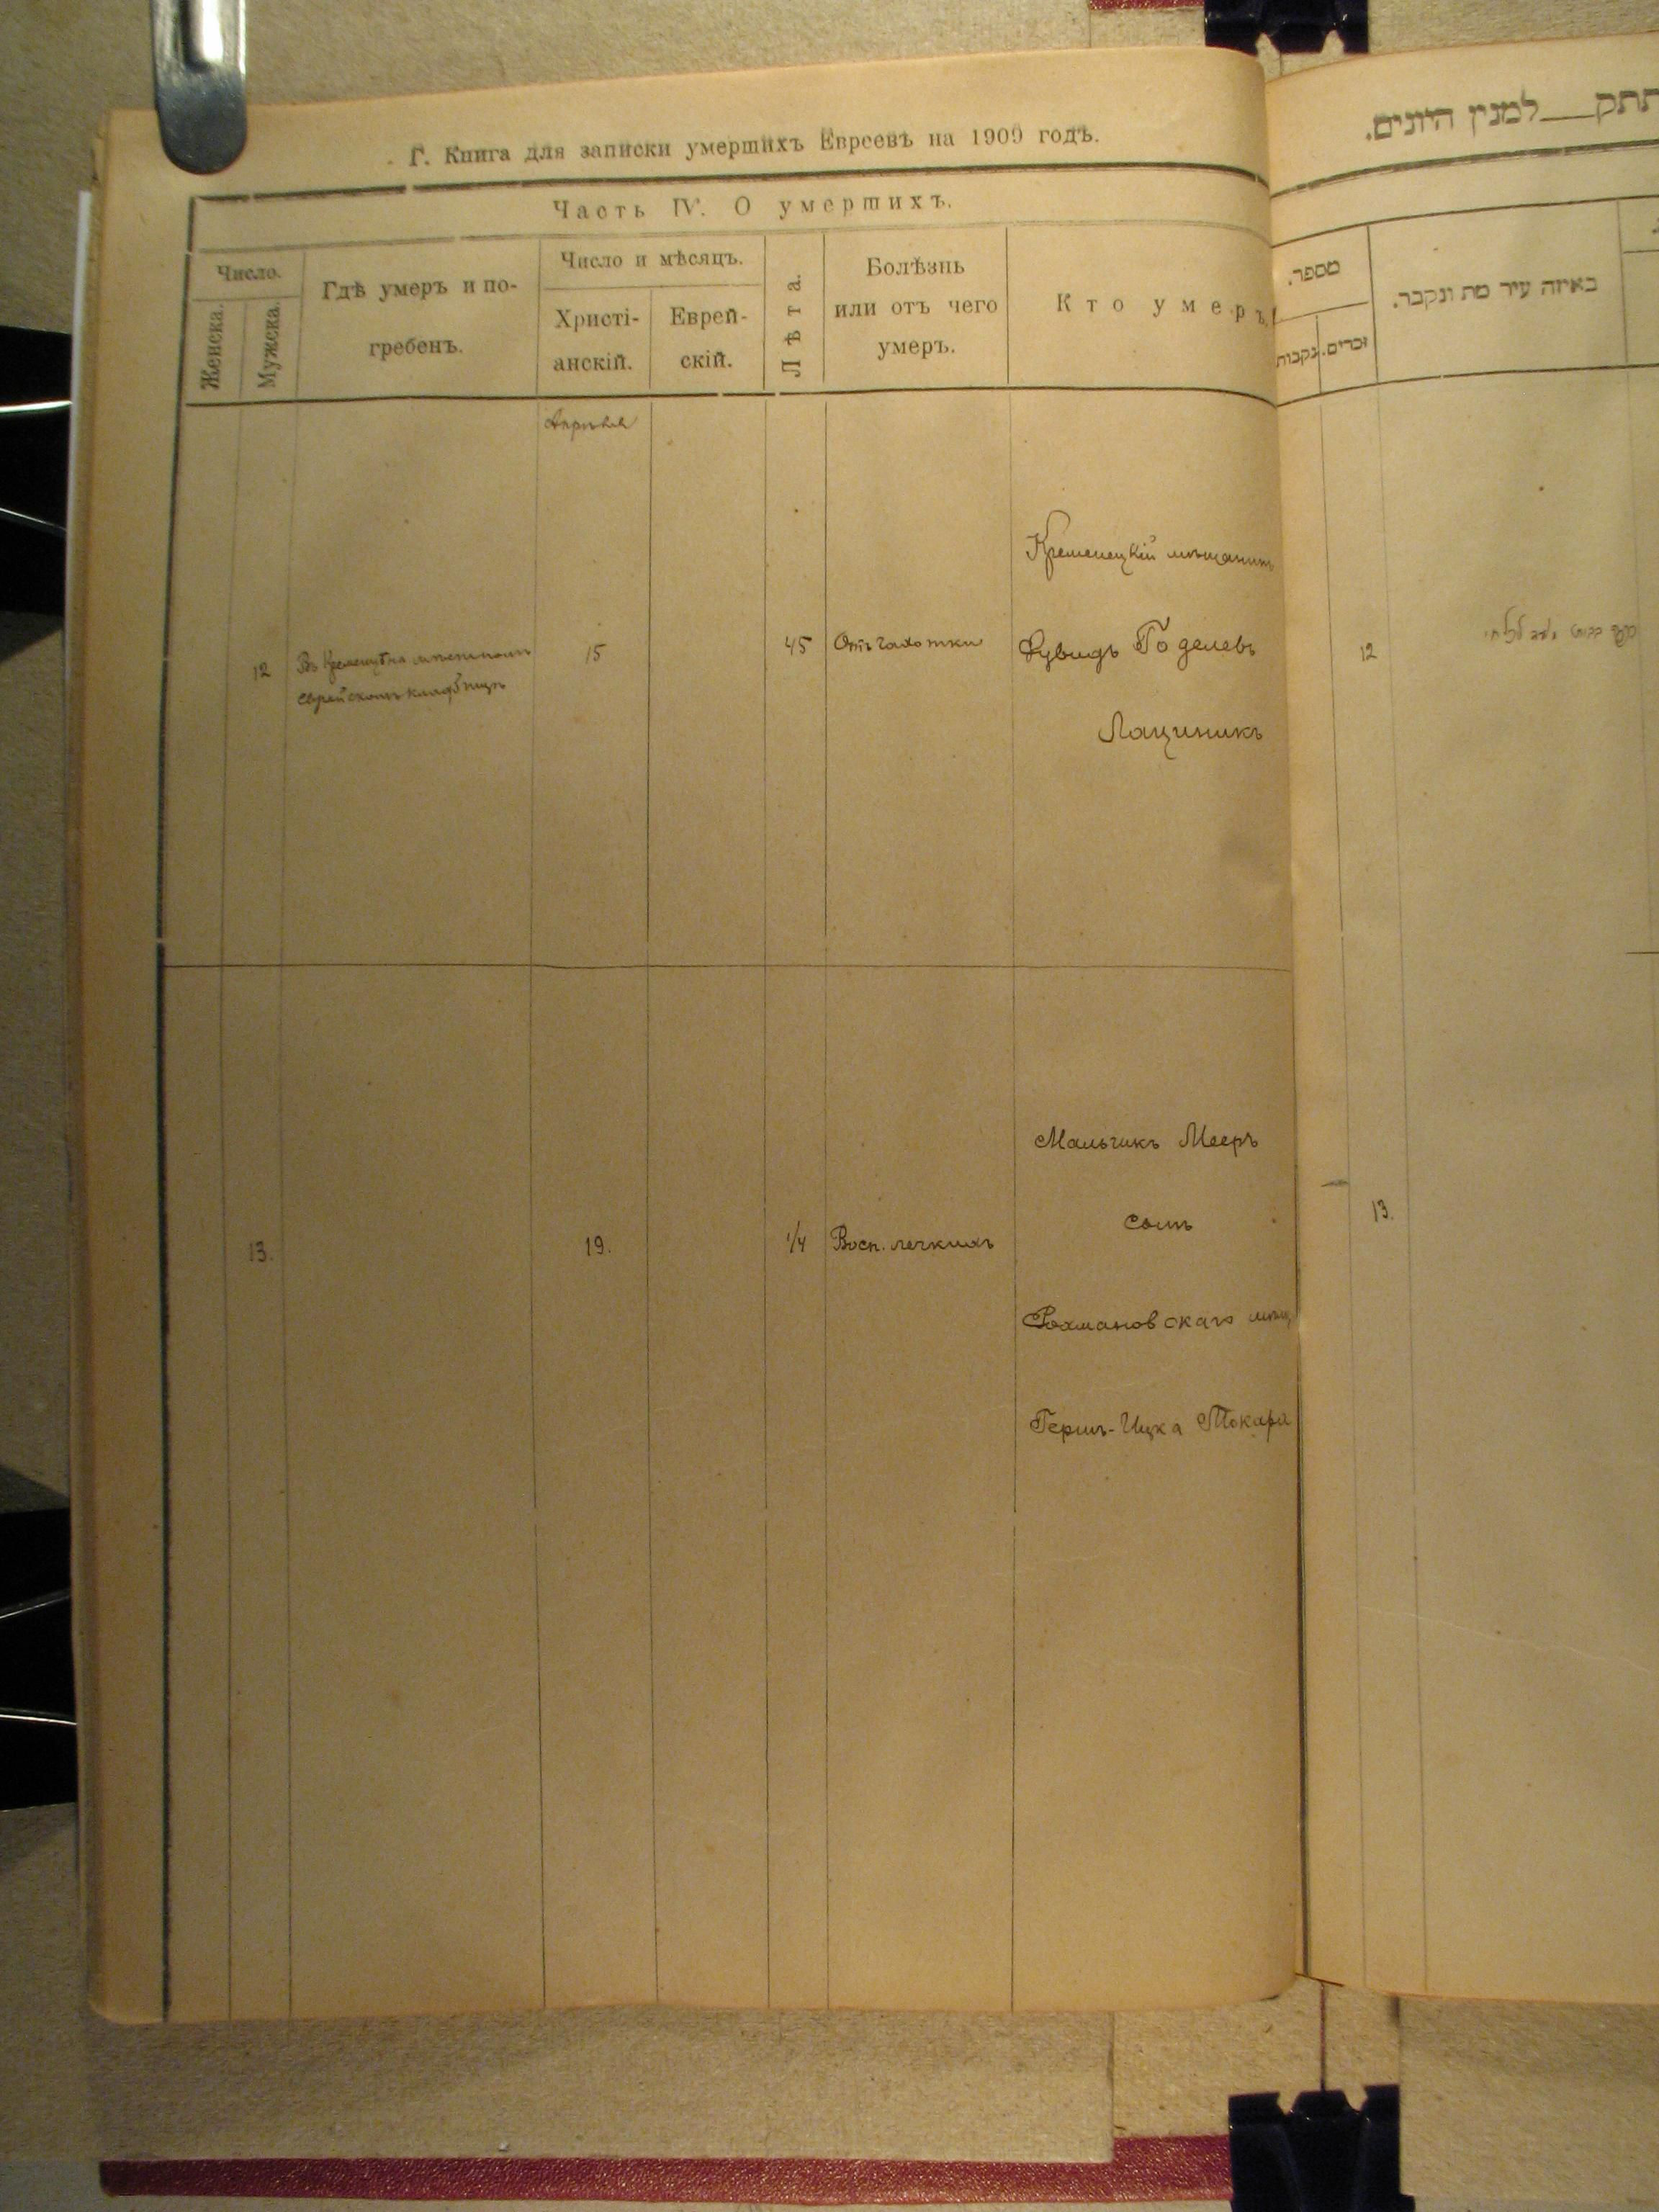 Г. Книга для записки умершихъ Евреевъ на 1909 годъ.
Часть IV. О умершихъ.
Число.
Женска.
Мужска.
Гдѣ умеръ и по-
гребенъ.
Число и мѣсяцъ.
Христі-
анскій.
Еврей-
скій.
Лѣта.
Болѣзнь
или отъ чего
умеръ.
Кто умеръ.
Апрѣля
12
Въ Кременцѣ на мѣстномъ
еврейскомъ кладбищѣ
15
45
Отъ чахотки
Кременецкій мѣщанинъ
Годелевъ
Лациникъ
13.
19.
1/4
Восп. легкихъ
Мальчикъ Мееръ
сынъ
Рахмановскаго мѣщ.
Герш-Ицка Токаря
למנין היונים.
מספר.
זכרים.
נקבות
באיזה עיר מת ונקבר.
12
13.